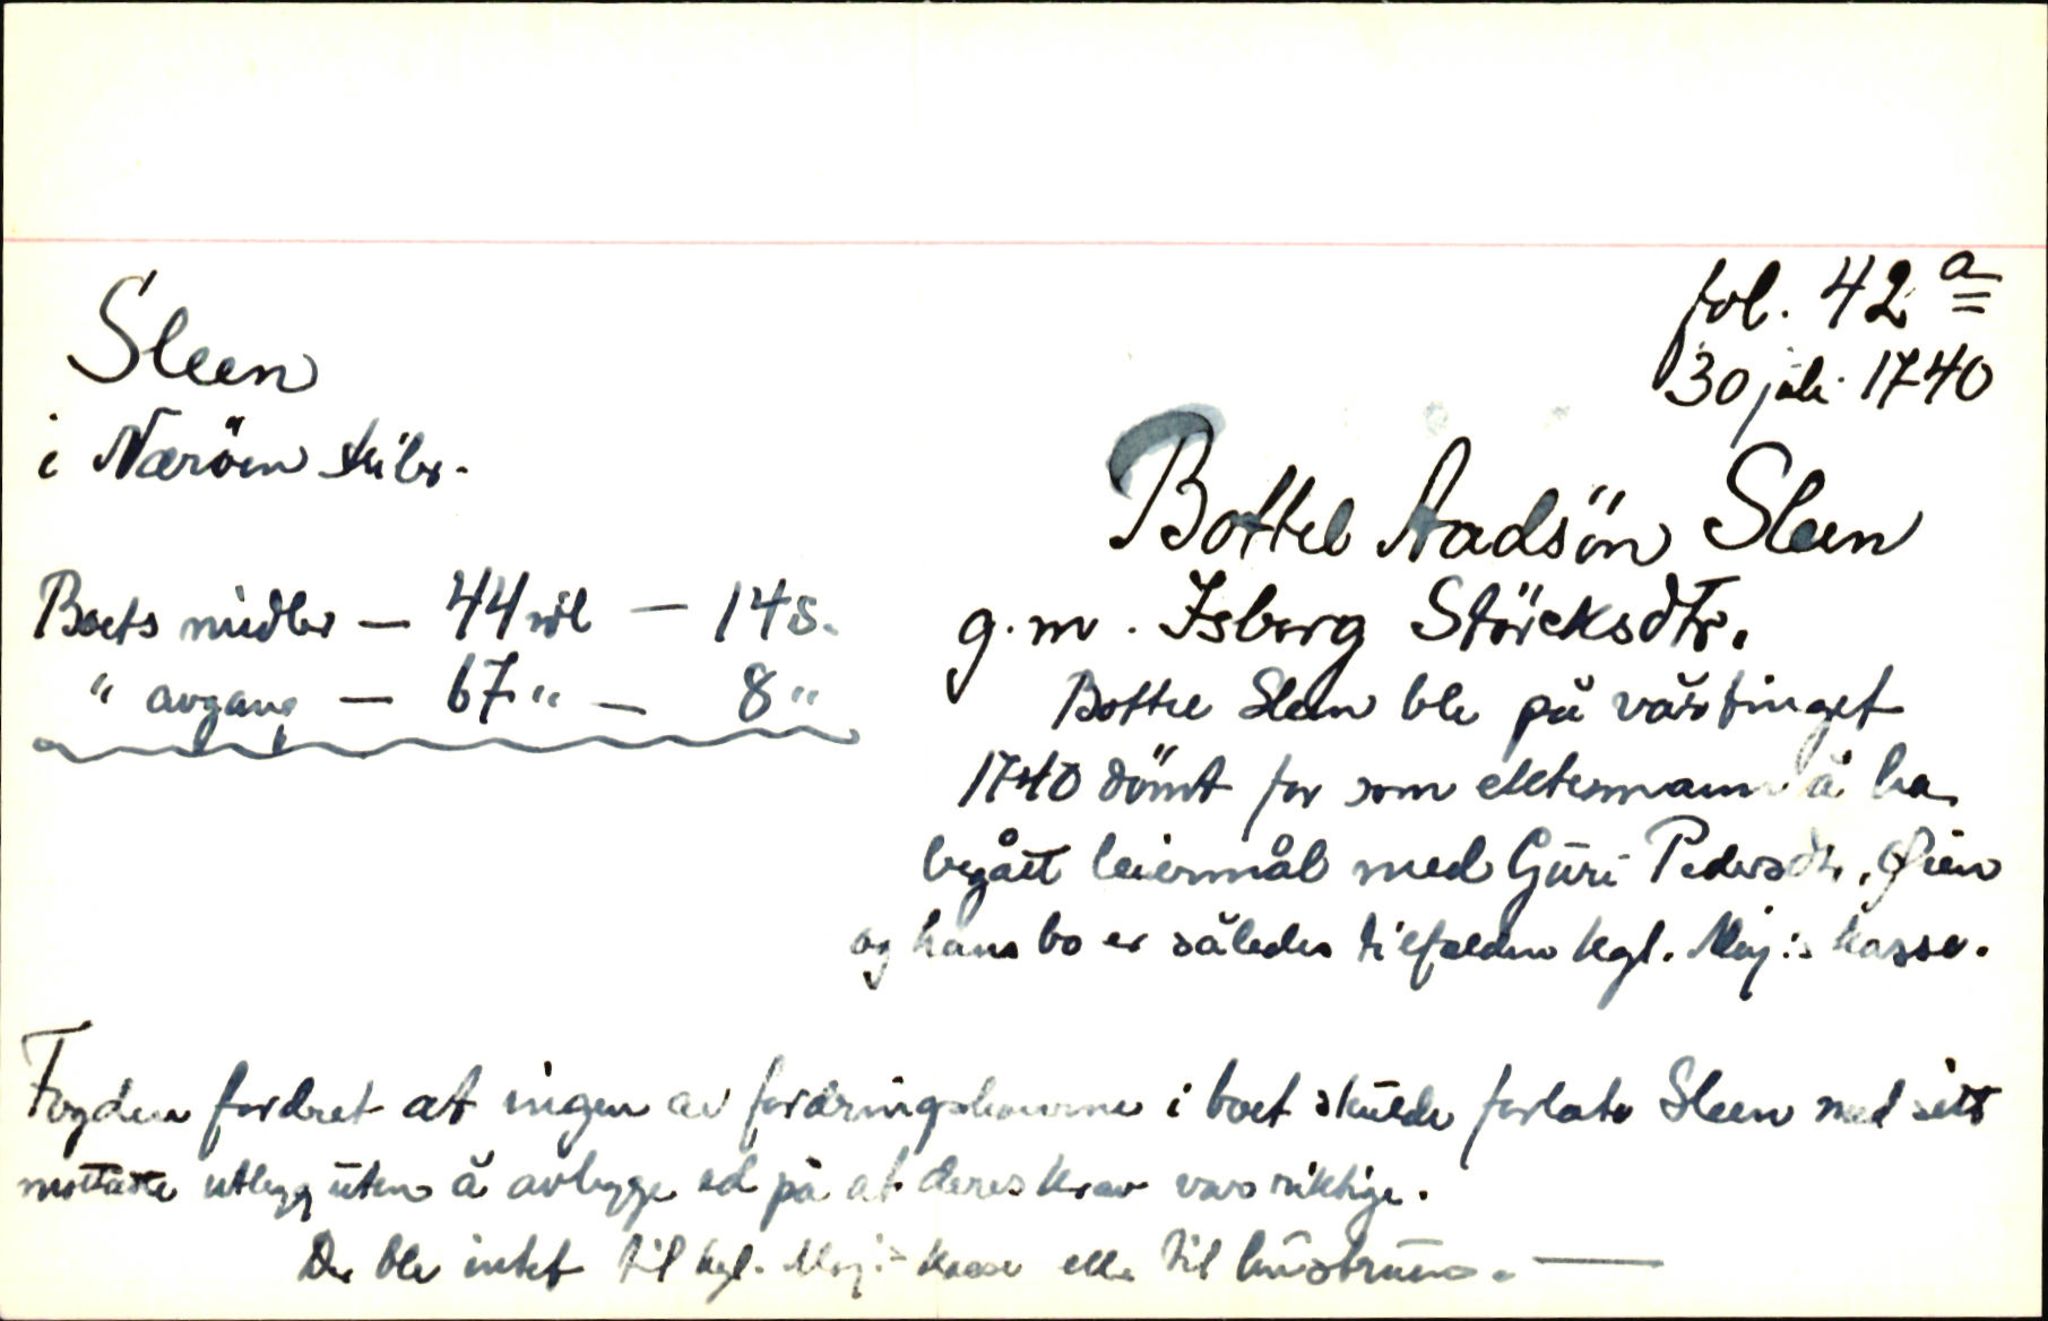 fol. 42 a
30 juli 1740
Sleen
i Næröen skibr.
Bottel Aadsön Sleen
g. m. Isberg Störcksdtr.
Boets midler — 44 rdl — 14 s.
" avgang — 67 " — 8 "
Bottel Sleen ble på vårtinget
1740 dömt for som ektemann å ha
begått leiermål med Guri Pedersdtr. Øien
og hans bo er således tilfalden kgl. Maj:s kasse.
Fogden fordret at ingen av fordringshaverne i boet skulde forlate Sleen med sitt
mottatte utlegg uten å avlegge ed på at deres krav var riktige.
Der ble intet til kgl. Maj:s kasse eller til hustruen. —